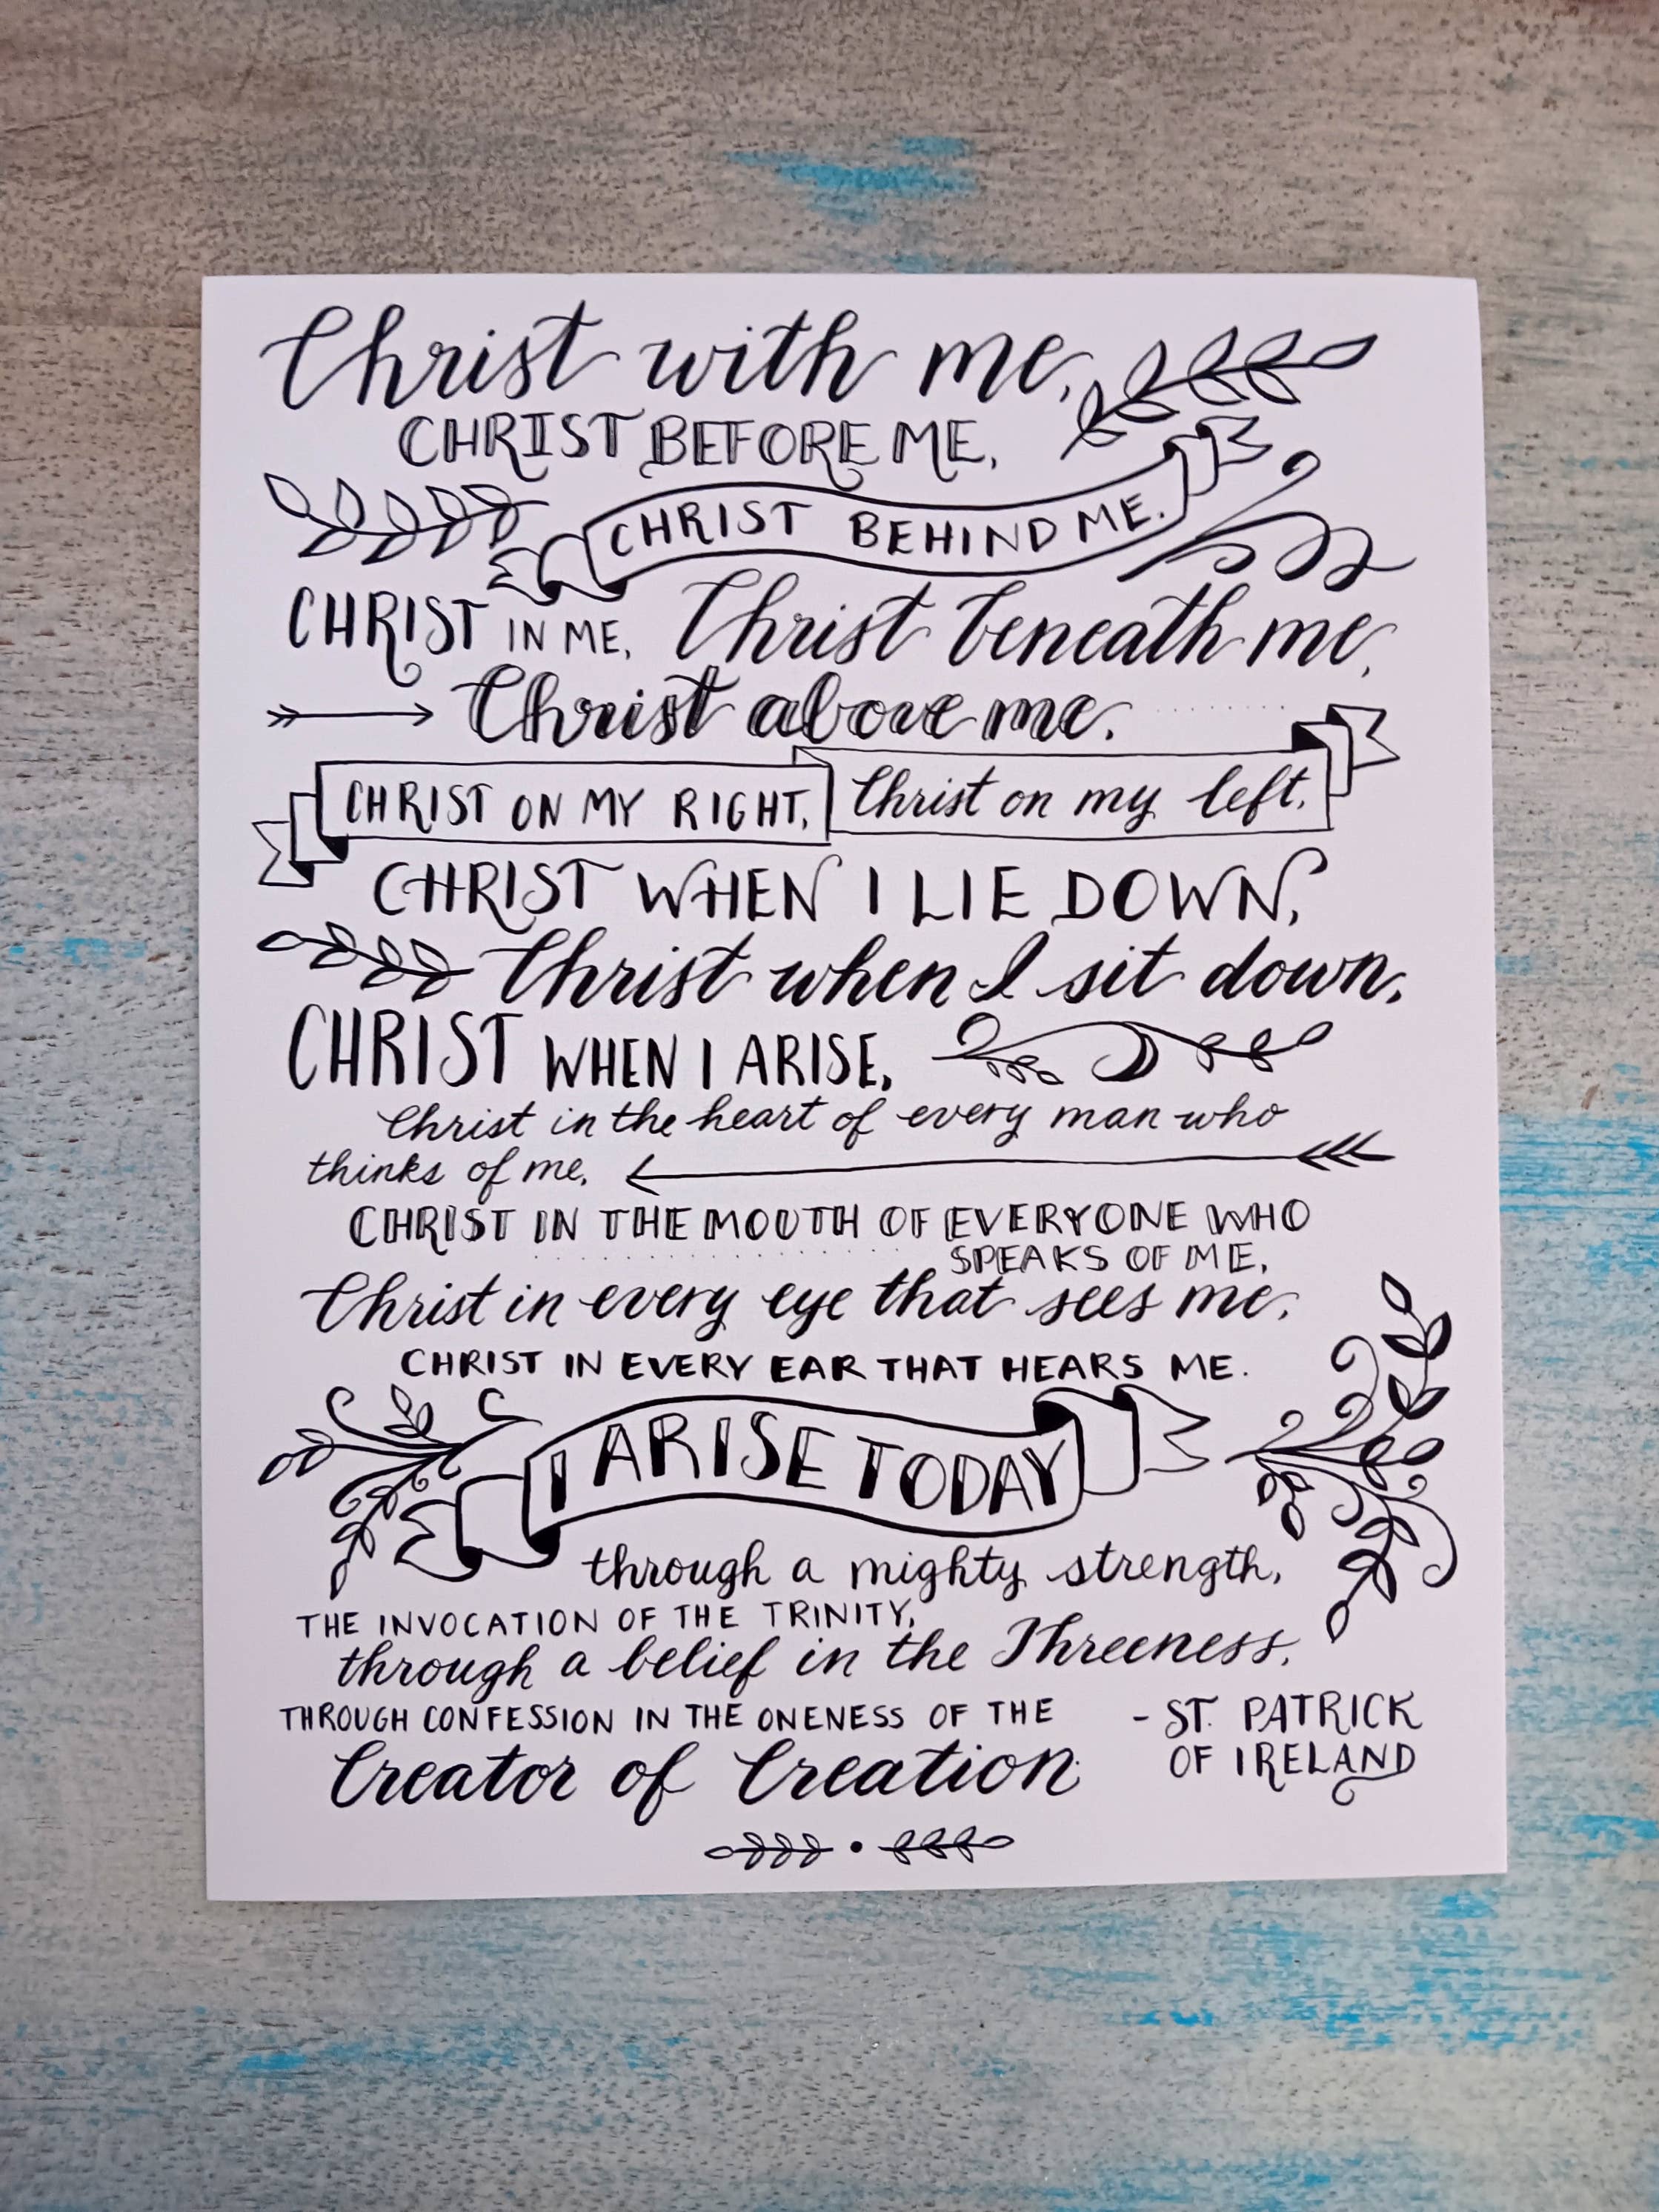 Christ with me,
CHRIST BEFORE ME,
CHRIST BEHIND ME.
CHRIST IN ME, Christ beneath me,
Christ above me.
CHRIST ON MY RIGHT, Christ on my left,
CHRIST WHEN I LIE DOWN,
Christ when I sit down,
CHRIST WHEN I ARISE,
Christ in the heart of every man who
thinks of me,
CHRIST IN THE MOUTH OF EVERYONE WHO
SPEAKS OF ME,
Christ in every eye that sees me,
CHRIST IN EVERY EAR THAT HEARS ME.
I ARISE TODAY
through a mighty strength,
THE INVOCATION OF THE TRINITY,
through a belief in the Threeness,
THROUGH CONFESSION IN THE ONENESS OF THE
Creator of Creation.
- ST. PATRICK
OF IRELAND